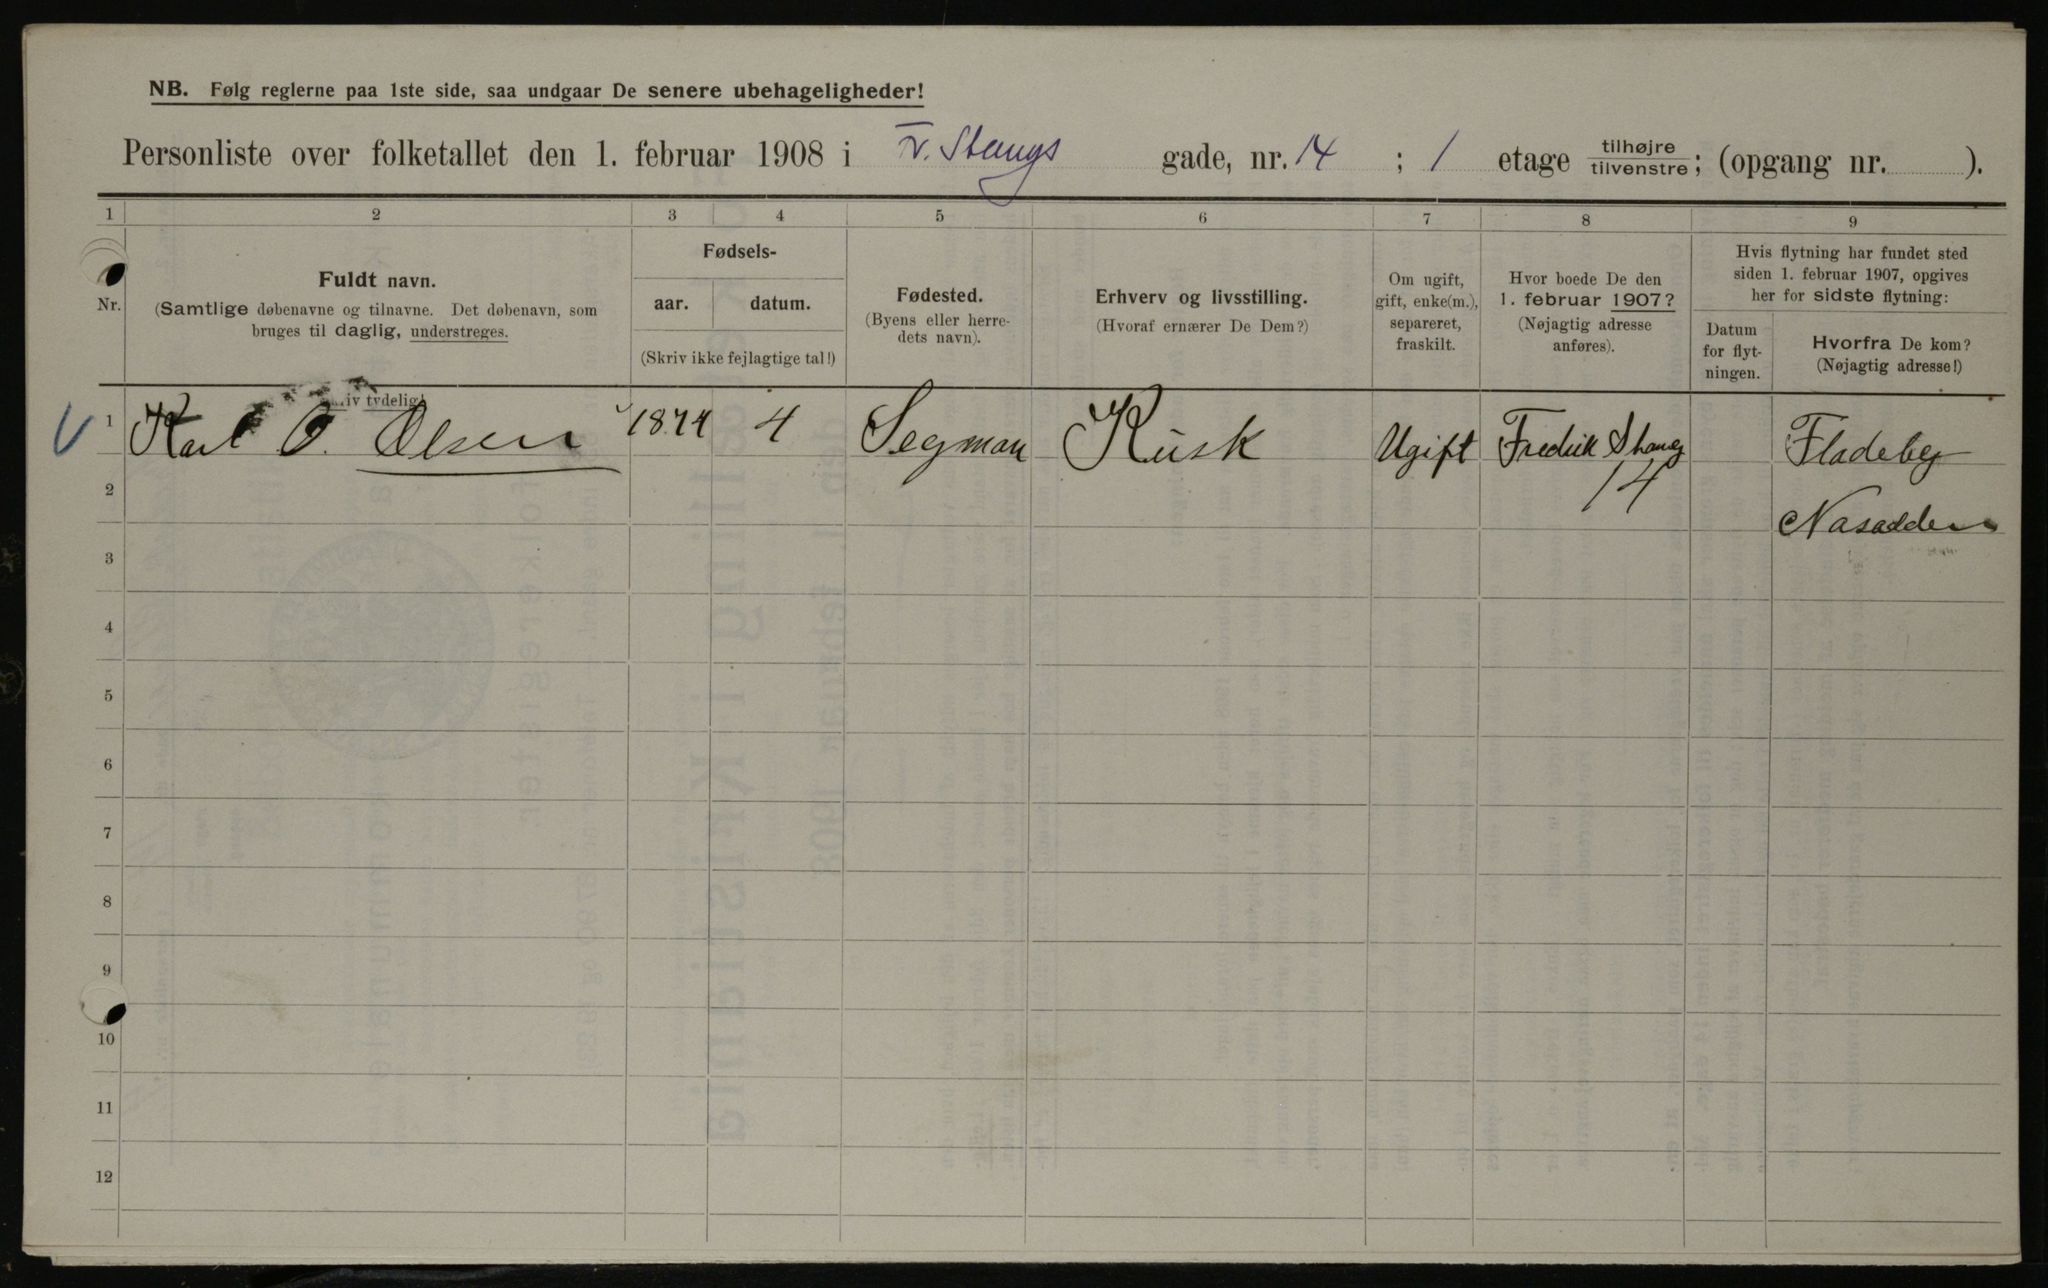 NB. Følg reglerne paa 1ste side, saa undgaar De senere ubehageligheder!
Personliste over folketallet den 1. februar 1908 i Fr. Stangs gade, nr. 14 ; 1 etage tilhøjre/tilvenstre; (opgang nr. ).
1 2 3 4 5 6 7 8 9
Nr.
Fuldt navn.
(Samtlige døbenavne og tilnavne. Det døbenavn, som
bruges til daglig, understreges.
Fødsels-
aar. datum.
(Skriv ikke fejlagtige tal!)
Fødested.
(Byens eller herre-
dets navn).
Erhverv og livsstilling.
(Hvoraf ernærer De Dem?)
Om ugift,
gift, enke(m.),
separeret,
fraskilt.
Hvor boede De den
1. februar 1907?
(Nøjagtig adresse
anføres).
Hvis flytning har fundet sted
siden 1. februar 1907, opgives
her for sidste flytning:
Datum
for flyt-
ningen.
Hvorfra De kom?
(Nøjagtig adresse!)
tydelig!
1 Karl O. Olsen 1874 4 Segman Kusk Ugift Fredrik Stang Fladeby
14
Nasodden
2
3
4
5
6
7
8
9
10
11
12